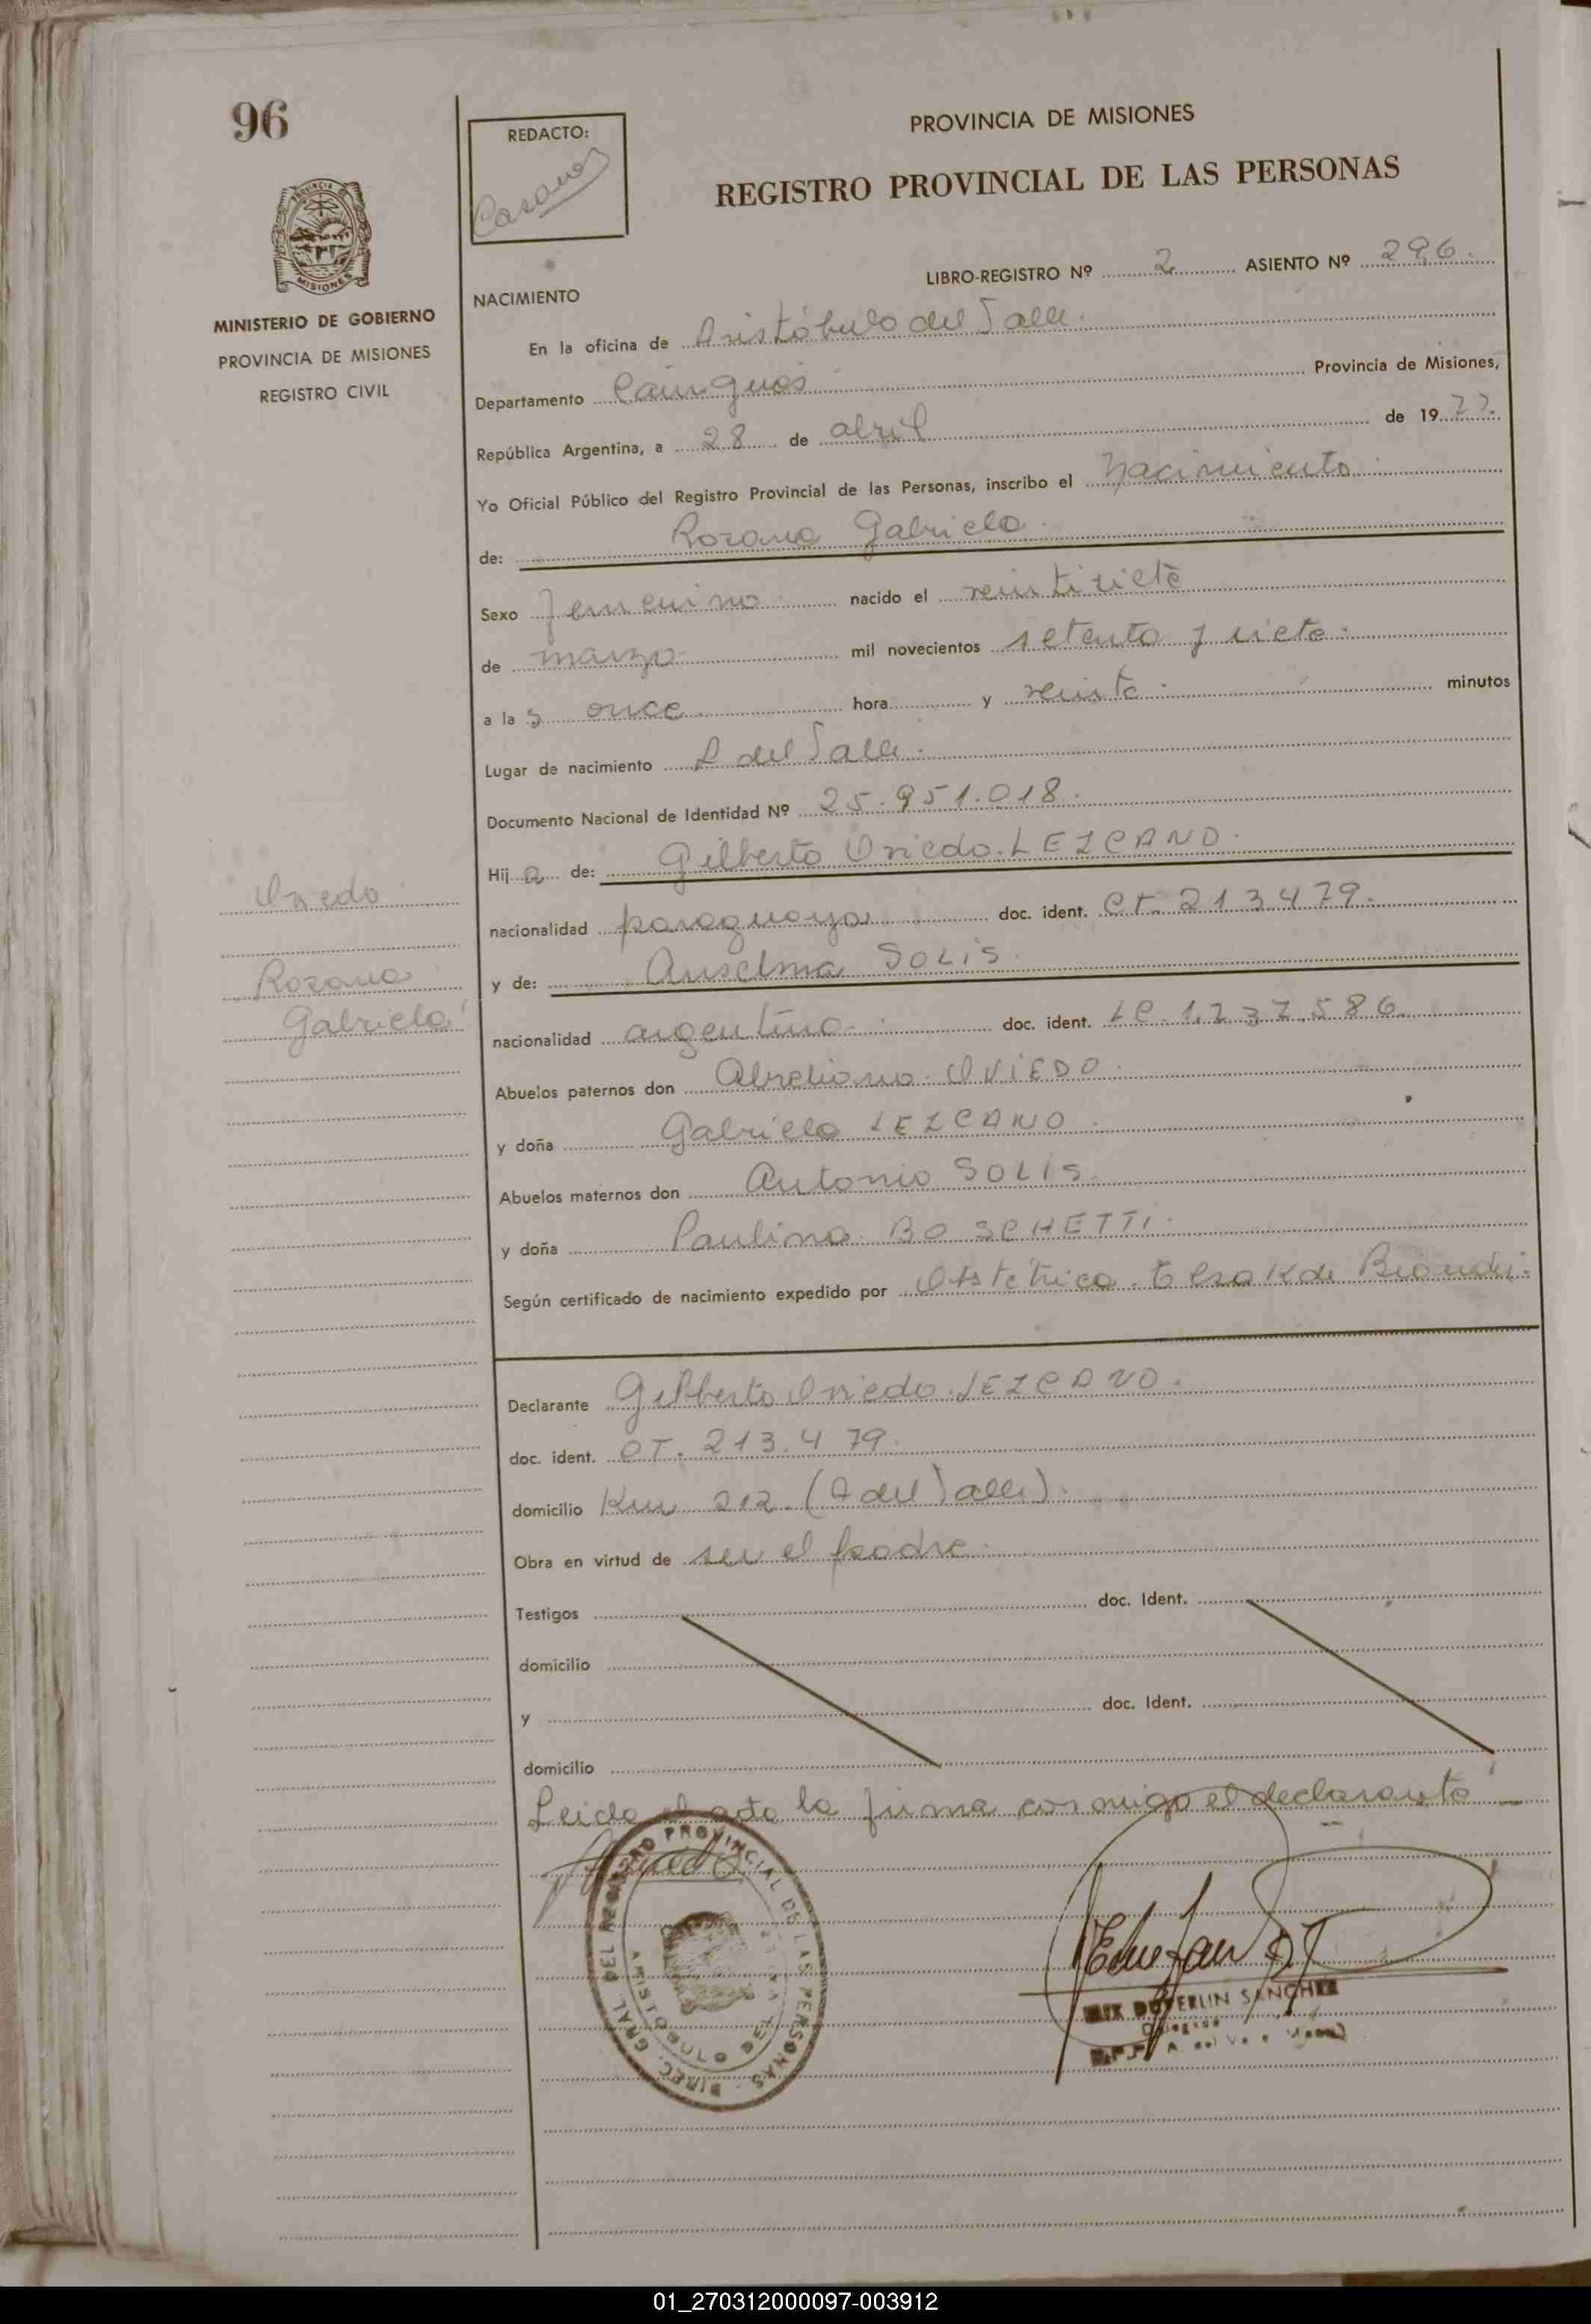 96
REDACTO:
PROVINCIA DE MISIONES
REGISTRO PROVINCIAL DE LAS PERSONAS
PROVINCIA
MISIONES
MINISTERIO DE GOBIERNO
PROVINCIA DE MISIONES
REGISTRO CIVIL
LIBRO-REGISTRO Nº 2 ASIENTO Nº 296.
NACIMIENTO
En la oficina de Aristóbulo del Valle.
Departamento Cainguás Provincia de Misiones,
República Argentina, a 28 de abril de 1977.
Yo Oficial Público del Registro Provincial de las Personas, inscribo el Nacimiento
de: Rozana Gabriela.
Sexo femenino. nacido el veintisiete
de marzo mil novecientos setenta y siete.
a las once. hora y veinte. minutos
Lugar de nacimiento A del Valle.
Documento Nacional de Identidad Nº 25.951.018.
Hija de: Gilberto Oviedo LEZCANO.
nacionalidad paraguaya doc. ident. CT. 213479.
y de: Anselma SOLIS.
nacionalidad argentina. doc. ident. LC. 1.237.586.
Abuelos paternos don OVIEDO.
y doña Gabriela LEZCANO.
Abuelos maternos don Antonio SOLIS.
y doña Paulina BOSCHETTI.
Según certificado de nacimiento expedido por Obstetrica. Elsa K de Biondi.
Oviedo
Rozana
Gabriela
Declarante Gilberto Oviedo LEZCANO.
doc. ident. CT. 213.479.
domicilio Km 212. (A del Valle).
Obra en virtud de ser el padre.
Testigos doc. Ident.
domicilio
y doc. Ident.
domicilio
Leida el acta la firma conmigo el declarante
DIREC. GRAL. DEL REGISTRO PROVINCIAL DE LAS PERSONAS
ARISTOBULO DEL
SANCHEZ
01_270312000097-003912